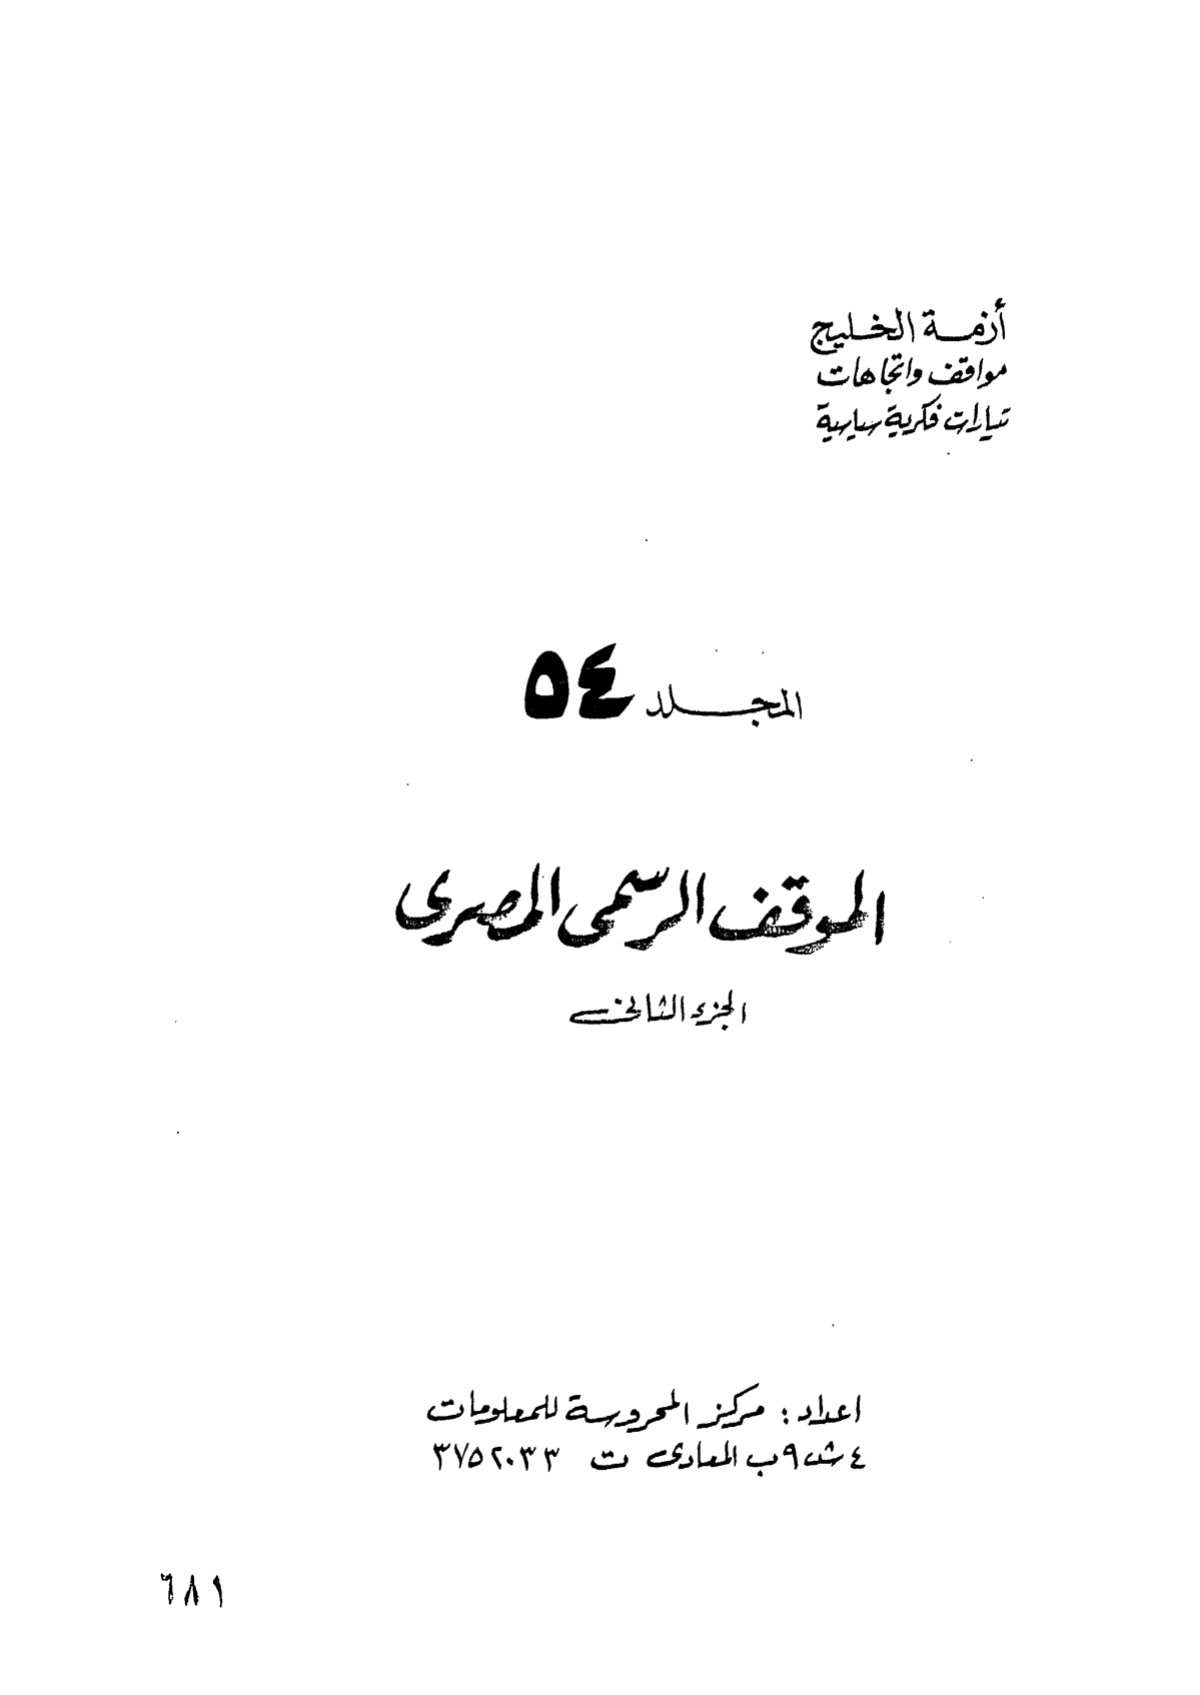 أزمة الخليج
مواقف واتجاهات
تيارات فكرية سياسية
المجلد ٥٤
الموقف الرسمى المصرى
الجزء الثانى
اعداد : مركز المحروسة للمعلومات
٤ ش ٩ب المعادى ت ٣٧٥٢٠٣٣
٦٨١